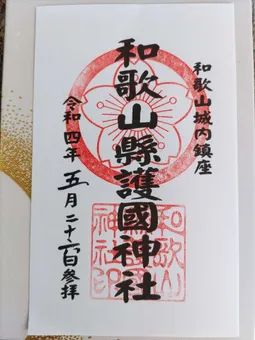 和歌山城内鎮座
和歌山縣護國神社
令和四年五月二十二日参拝
和歌山
神社印